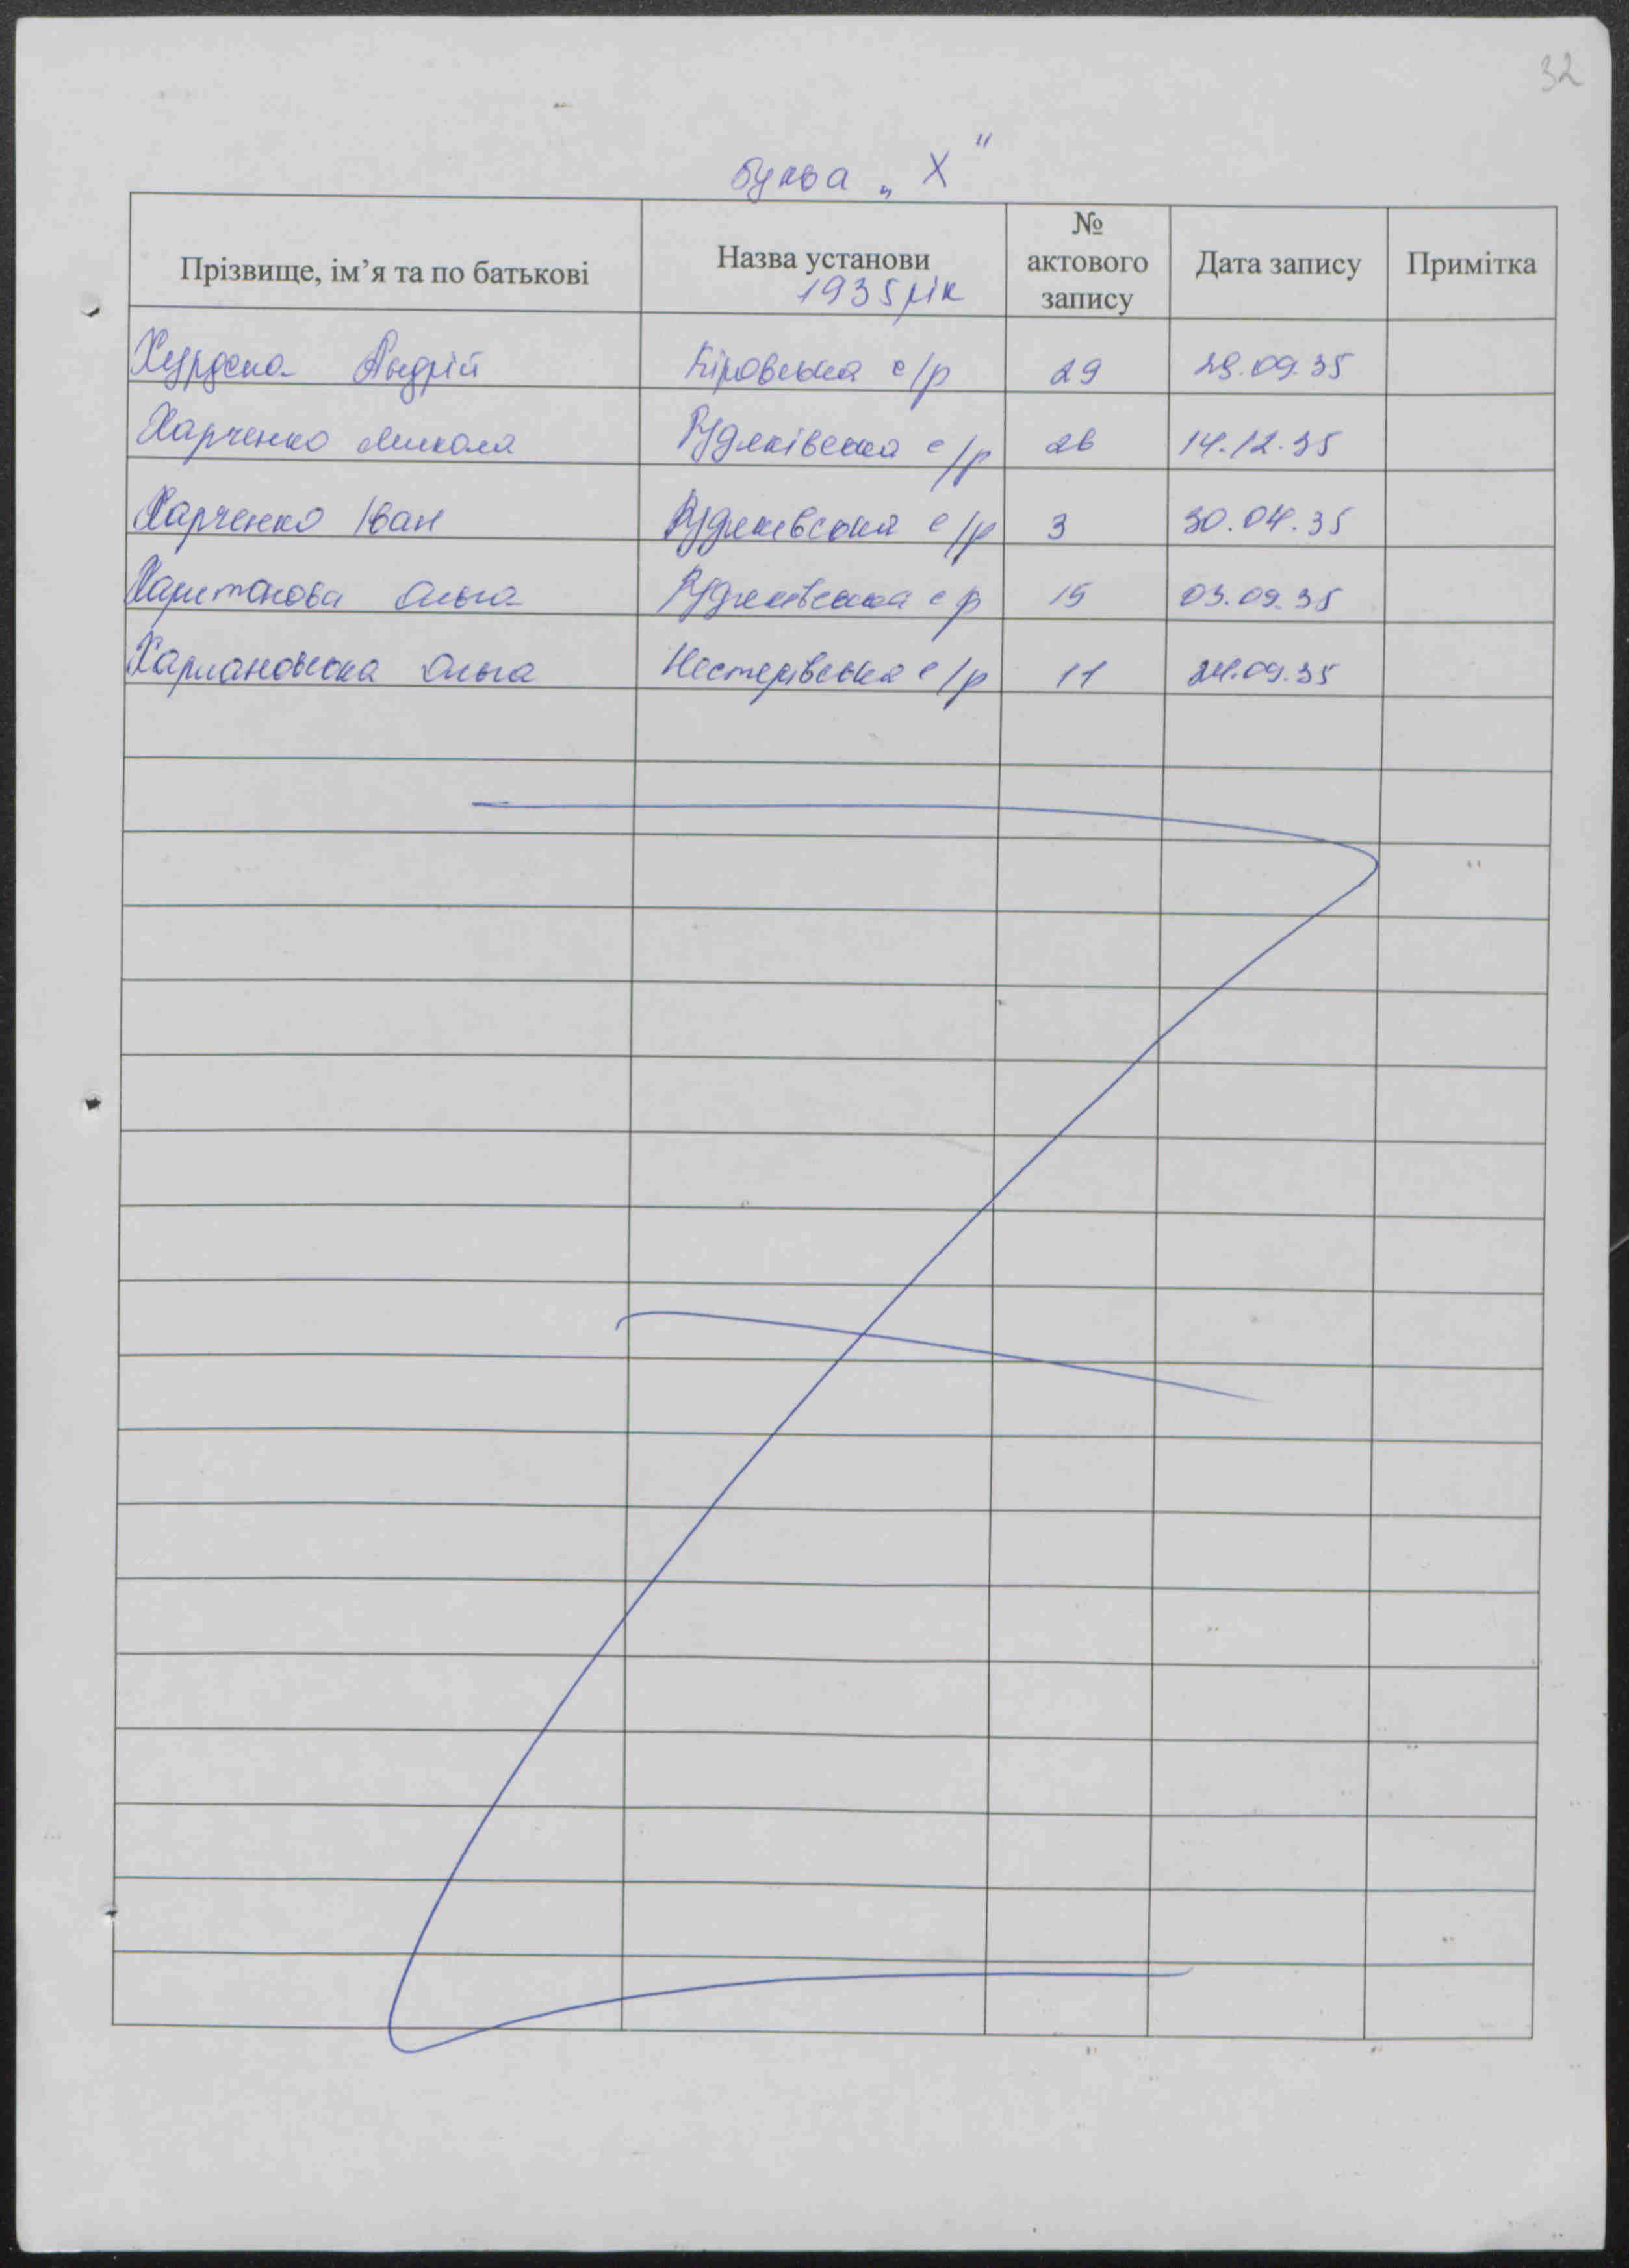 32
буква „Х"
Прізвище, ім'я та по батькові Назва установи 1935 рік № актового запису Дата запису Примітка
Андрій Кіровська с/р 29 29.09.35
Харченко Микола Рудяківська с/р 26 14.12.35
Харченко Іван Рудяківська с/р 3 30.04.35
Харитонова Ольга Рудяківська с р 15 03.09.35
Харлановська Ольга Нестерівська с/р 11 24.09.35